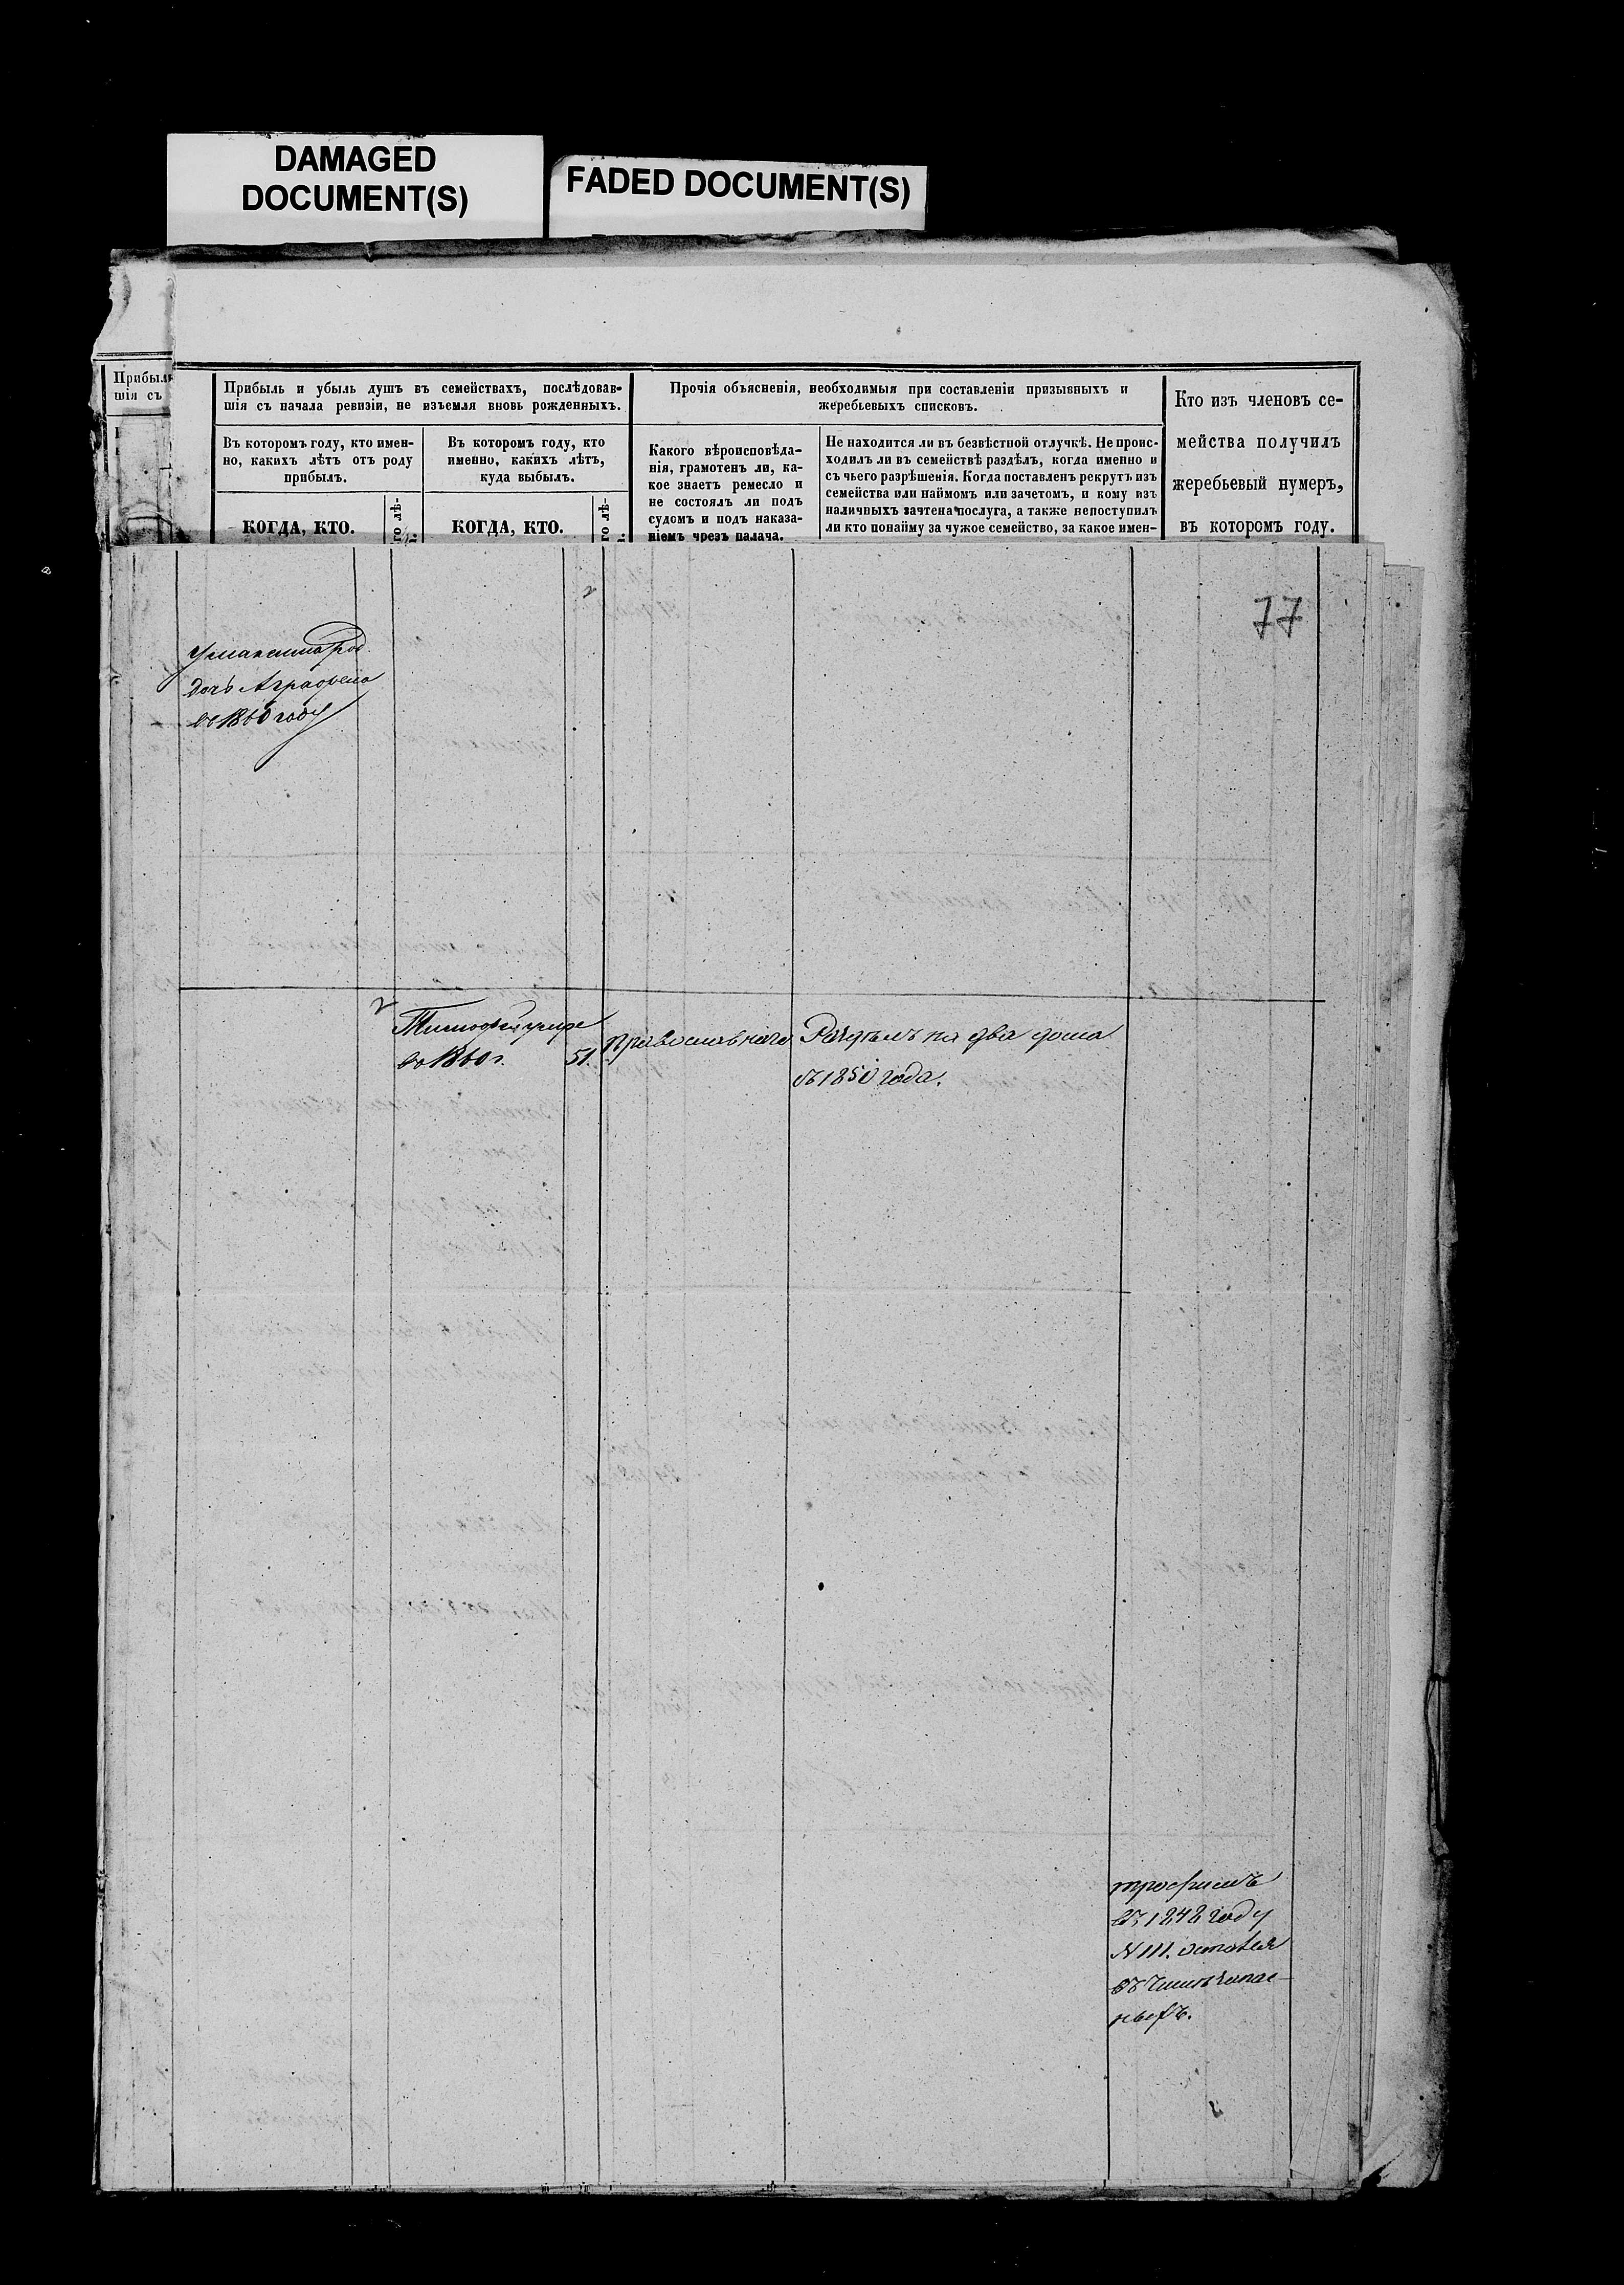 DAMAGED
DOCUMENT(S)
FADED DOCUMENT(S)
Прибыль
шія съ
Прибыль и убыль душъ въ семействахъ, послѣдовав-
шія съ начала ревизіи, не изъемля вновь рожденныхъ.
Въ которомъ году, кто имен-
но, какихъ лѣтъ отъ роду
прибылъ.
КОГДА, КТО.
го лѣ-
Въ которомъ году, кто
именно, какихъ лѣтъ,
куда выбылъ.
КОГДА, КТО.
го лѣ-
Прочія объясненія, необходимыя при составленіи призывныхъ и
жеребьевыхъ списковъ.
Какого вѣроисповѣда-
нія, грамотенъ ли, ка-
кое знаетъ ремесло и
не состоялъ ли подъ
судомъ и подъ наказа-
ніемъ чрезъ палача.
Не находится ли въ безвѣстной отлучкѣ. Не проис-
ходилъ ли въ семействѣ раздѣлъ, когда именно и
съ чьего разрѣшенія. Когда поставленъ рекрутъ изъ
семейства или наймомъ или зачетомъ, и кому изъ
наличныхъ зачтена послуга, а также непоступилъ
ли кто понайму за чужое семейство, за какое имен-
Кто изъ членовъ се-
мейства получилъ
жеребьевый нумеръ,
въ которомъ году.
77
Умаксима род.
дочь Аграфена
въ 1860 году
Тимофей умре
въ 1860 г.
51.
православнаго
Раздѣлъ на два дома
съ 1850 года.
трофимъ
въ 1848 году
N 111. остался
въ числѣ запас-
ныхъ.